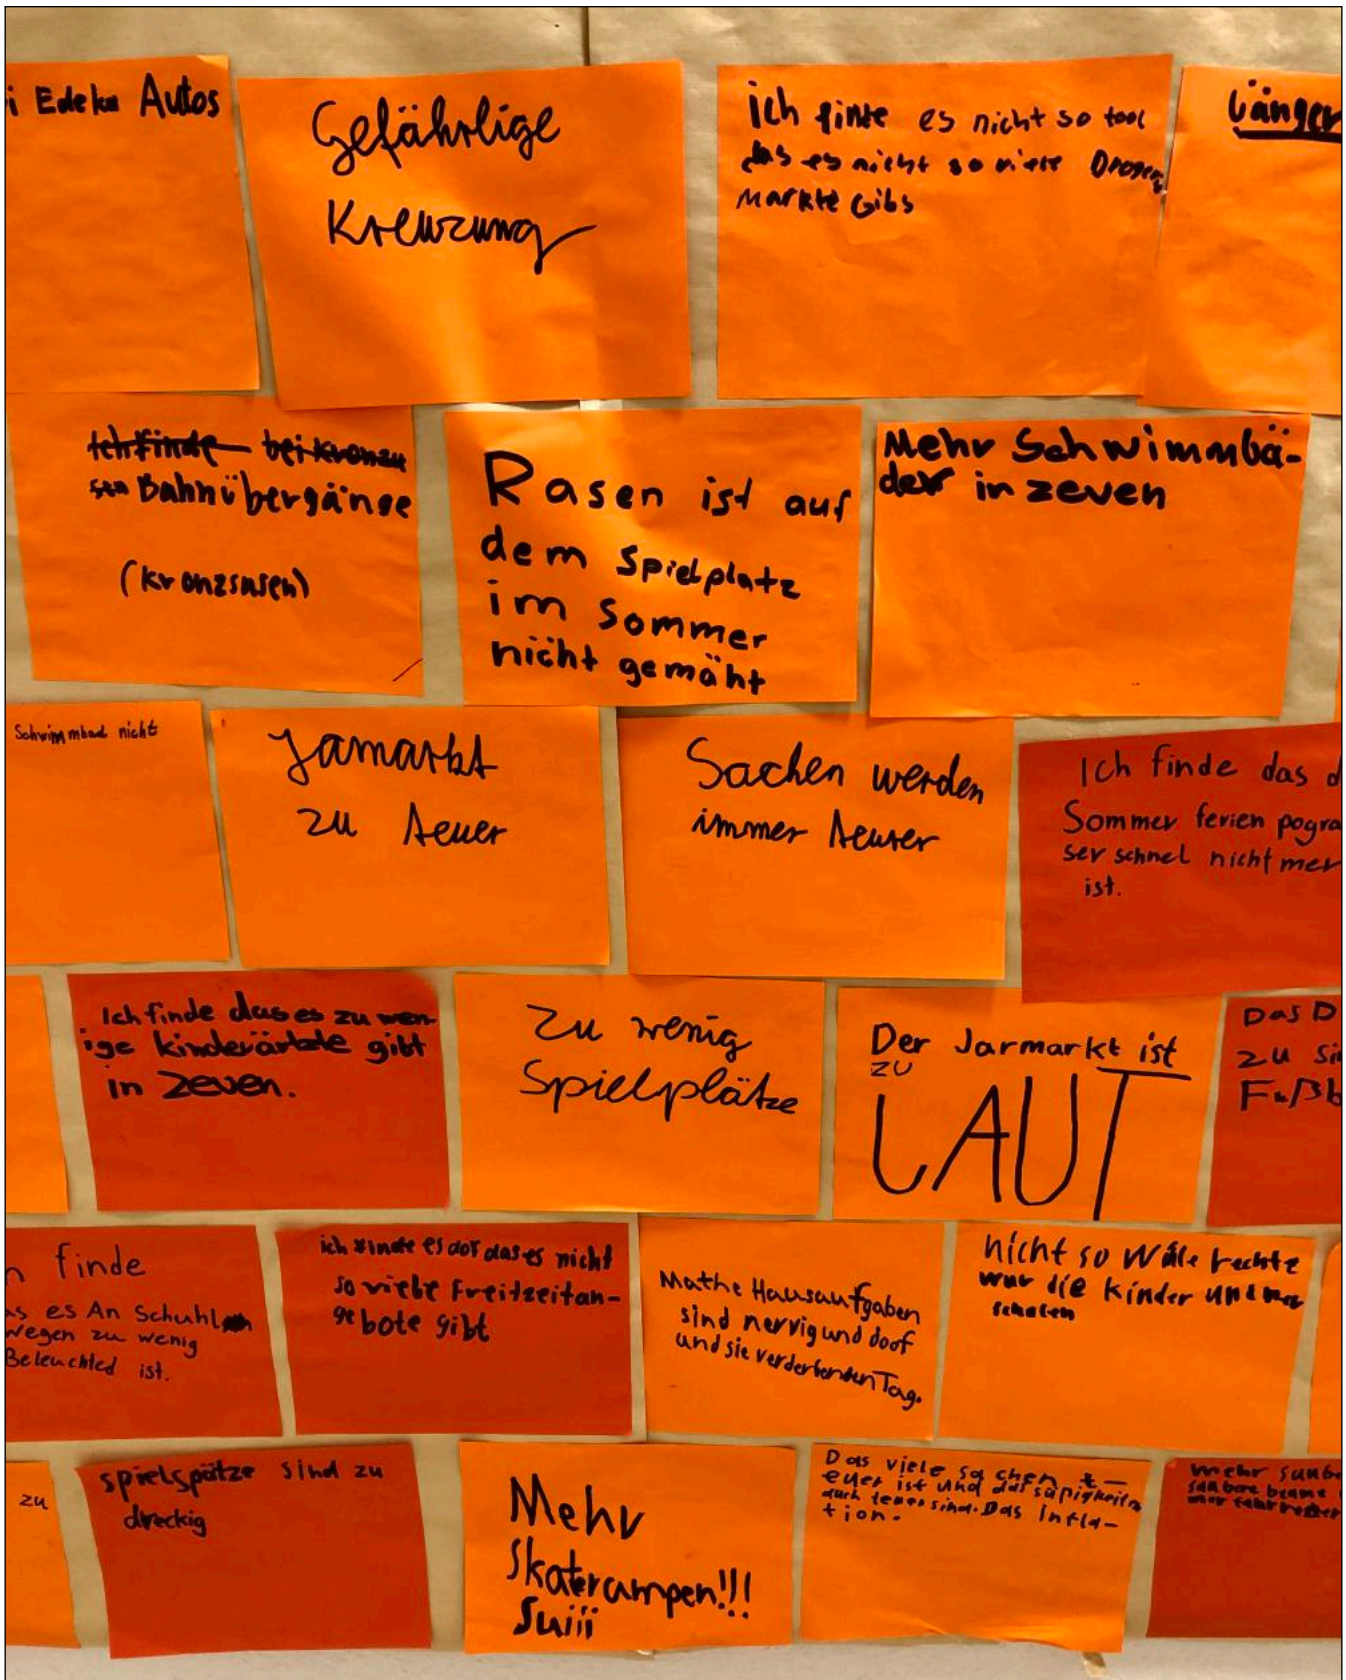 i Edeka Autos
Gefährlige
Kreuzung
ich finte es nicht so tool
das es nicht so viele Drogen
Markte Gibs
Länger
Ich finde bei Kronzu
Bahnübergänge
(Kronzsnsen)
Rasen ist auf
dem Spielplatz
im Sommer
nicht gemäht
Mehr Schwimmbä-
der in zeven
Schwimmbad nicht
Jamarkt
zu teuer
Sachen werden
immer teurer
Ich finde das d
Sommer ferien pogra
ser schnel nicht mer
ist.
Ich finde das es zu wen-
ige kinderärtzte gibt
in Zeven.
Zu wenig
Spielplätze
Der Jarmarkt ist
zu
LAUT
Das D
zu si
Fußb
n finde
as es An Schuhl
wegen zu wenig
Beleuchted ist.
ich finde es dof das es nicht
so viele Freitzeitan-
gebote gibt
Mathe Hausaufgaben
sind nervig und doof
und sie verderben den Tag.
nicht so rechte
die Kinder und
zu
spielspätze sind zu
dreckig
Mehr
Skaterampen!!!
Suiii
Das viele sachen t-
euer ist und das süßigkeiten
auch teuer sind. Das Infla-
tion.
mehr saube